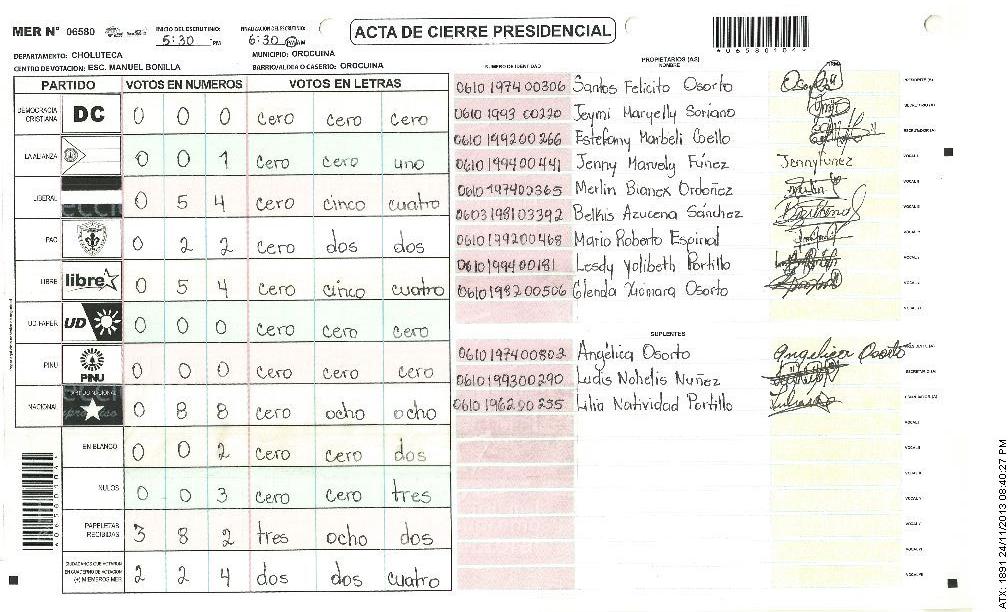 MER N° 06580
INICIO DEL ESCRUTINIO:
5:30 PM
FINALIZACION DEL ESCRUTINIO:
6:30 AM PM
ACTA DE CIERRE PRESIDENCIAL
DEPARTAMENTO: CHOLUTECA
MUNICIPIO: OROCUINA
CENTRO DE VOTACION: ESC. MANUEL BONILLA
BARRIO/ALDEA O CASERIO: OROCUINA
PARTIDO VOTOS EN NUMEROS VOTOS EN LETRAS
DEMOCRACIA CRISTIANA DC 0 0 0 cero cero cero
LA ALIANZA 0 0 1 cero cero uno
LIBERAL 0 5 4 cero cinco cuatro
PAC 0 2 2 cero dos dos
LIBRE libre 0 5 4 cero cinco cuatro
UD-FAPER UD 0 0 0 cero cero cero
PINU PINU 0 0 0 cero cero cero
NACIONAL 0 8 8 cero ocho ocho
EN BLANCO 0 0 2 cero cero dos
NULOS 0 0 3 cero cero tres
PAPELETAS RECIBIDAS 3 8 2 tres ocho dos
CIUDADANOS QUE VOTARON EN CUADERNO DE VOTACION (+) MIEMBROS MER 2 2 4 dos dos cuatro
NUMERO DE IDENTIDAD
PROPIETARIOS (AS)
NOMBRE
0610 1974 00306 Santos Felicito Osorto
0610 1993 00220 Jeymi Maryelly Soriano
0610 199200266 Estefany Marbeli Coello
0610 199400441 Jenny Marvely Fúnez Jenny Funez
0610 197400365 Merlin Bianex Ordoñez
0603198103392 Belkis Azucena Sánchez
0610 199200468 Mario Roberto Espinal
0610199400181 Lesdy Yolibeth Portillo
0610198200506 Glenda Xiomara Osorto
SUPLENTES
0610 197400802 Angélica Osorto Angelica Osorto
0610 199300290 Ludis Nohelis Nuñez
0610 196200255 Lilia Natividad Portillo
ATX: 1891 24/11/2013 08:40:27 PM